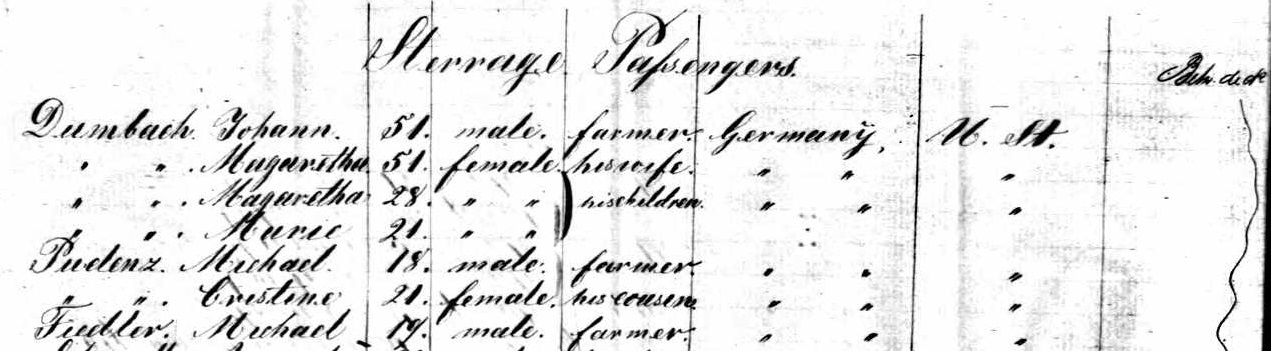 Sterrage Passengers.
Beh. deck
Dumbach Johann. 51. male. farmer. Germany, U. St.
" " . Magaretha 51. female. his wife. " " "
" " . Magaretha 28. " " his children. " " "
" " . Marie 21. " "
Pudenz. Michael. 18. male. farmer. " " "
" " . Cristine 21. female. his cousine " " "
Fiedler. Michael 19. male. farmer. " " "